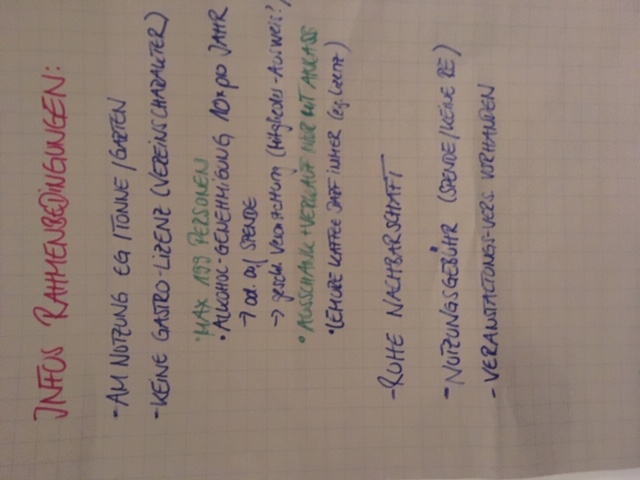 INFOS RAHMENBEDINGUNGEN:
- AM NUTZUNG EG / TONNE / GARTEN
- KEINE GASTRO-LIZENZ (VEREINSCHARAKTER)
• MAX 199 PERSONEN
• ALKOHOL-GENEHMIGUNG 10x pro JAHR
→ od. auf SPENDE
→ geschl. Veranstaltung (Mitglieder-Ausweis?)
• AUSSCHANK + VERKAUF NUR MIT ANLASS
• KAFFEE DARF IMMER
- RUHE NACHBARSCHAFT
- NUTZUNGSGEBÜHR (SPENDE / KEINE RE)
- VERANSTALTUNGS-VERS. VORHANDEN